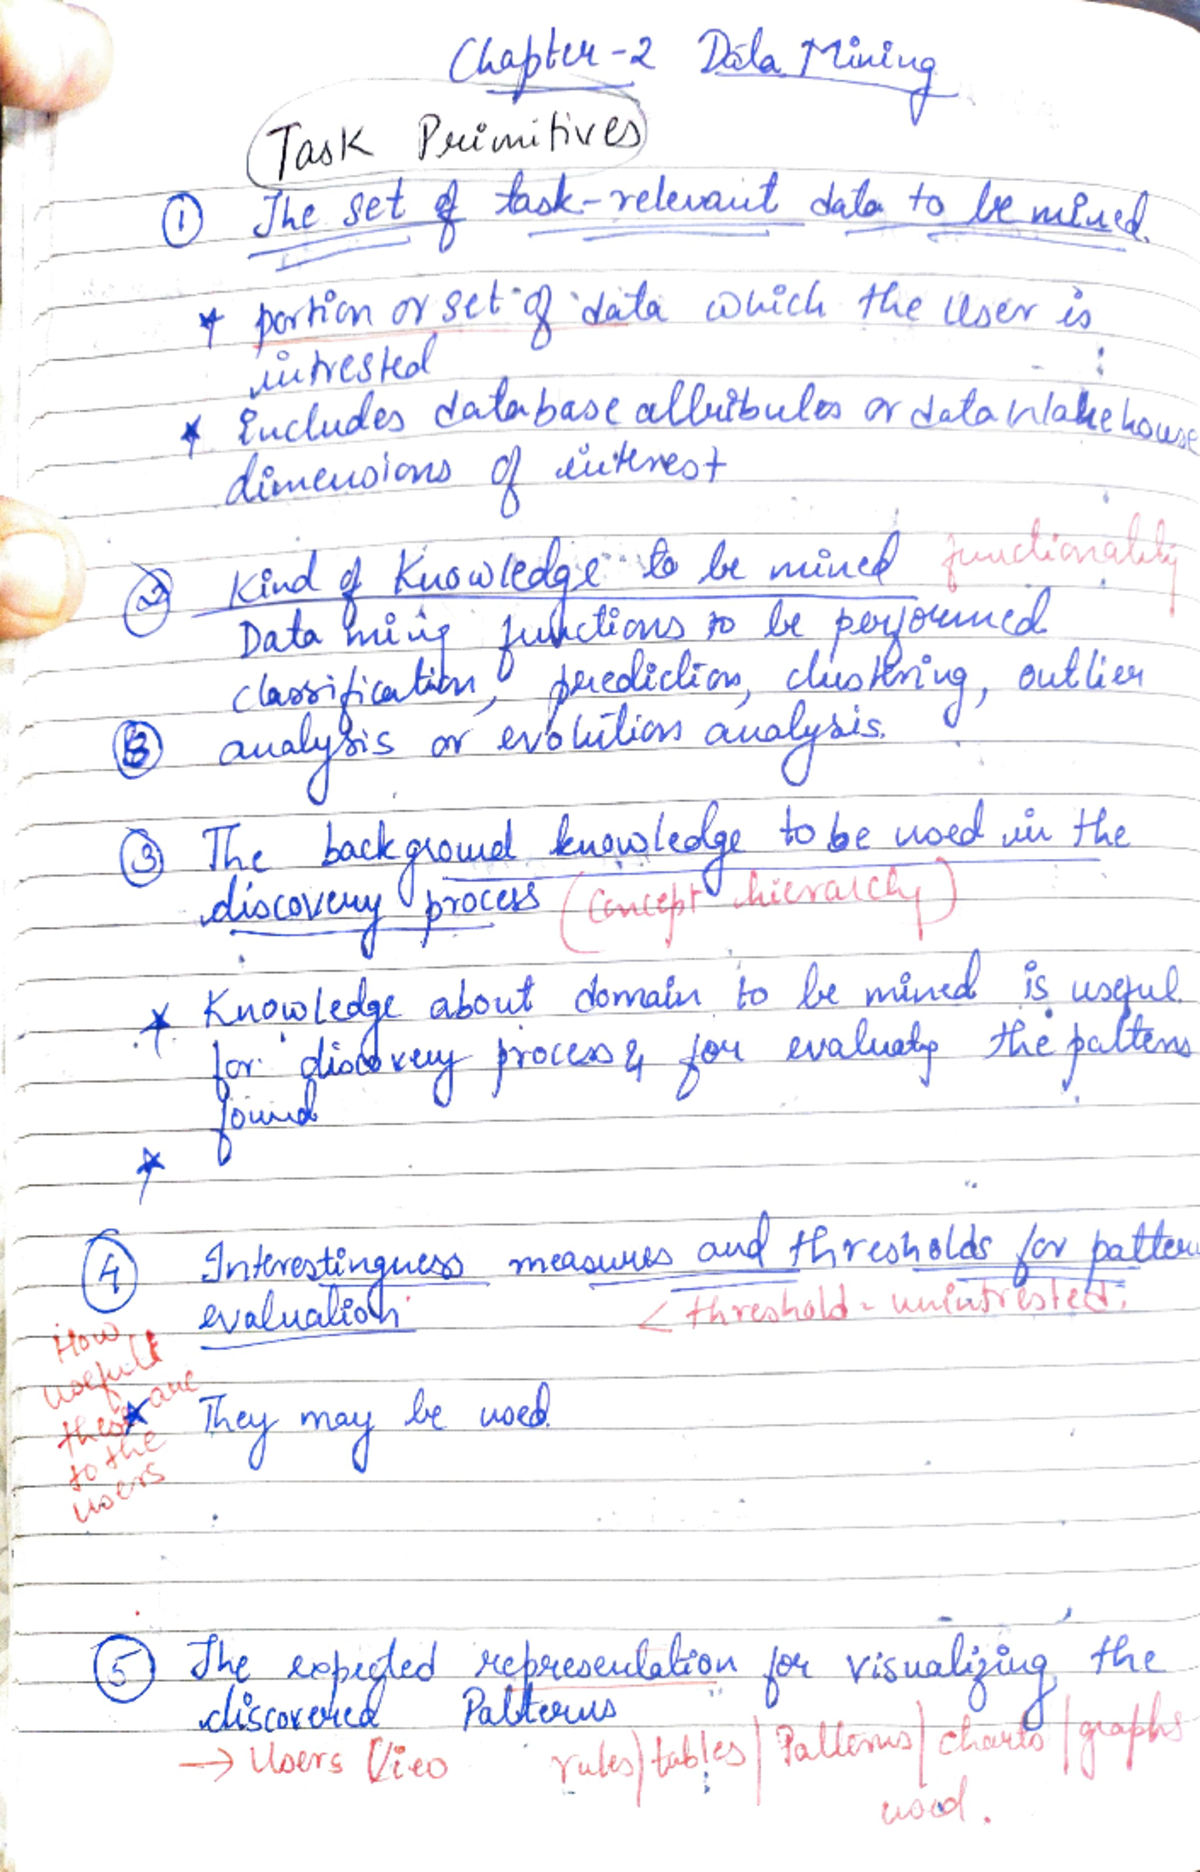 Chapter-2 Data Mining
Task Primitives
① The set of task-relevant data to be mined.
* portion or set of data which the user is
intrested
* Includes database attributes or data warehouse
dimensions of interest
② Kind of Knowledge to be mined functionality
Data ming functions to be performed
classification, prediction, clustering, outlier
③ analysis or evolution analysis.
③ The background knowledge to be used in the
discovery process (concept hierarchy)
* Knowledge about domain to be mined is useful
for discovery process & for evaluatg the pattens
found
*
④ Interestingness measures and thresholds for pattern
evaluation < threshold - unintrested.
How
useful
these are
to the
users
* They may be used.
⑤ The expected representation for visualizing the
discovered Patterns
→ Users View rules/tables/Patterns/charts/graphs
used.